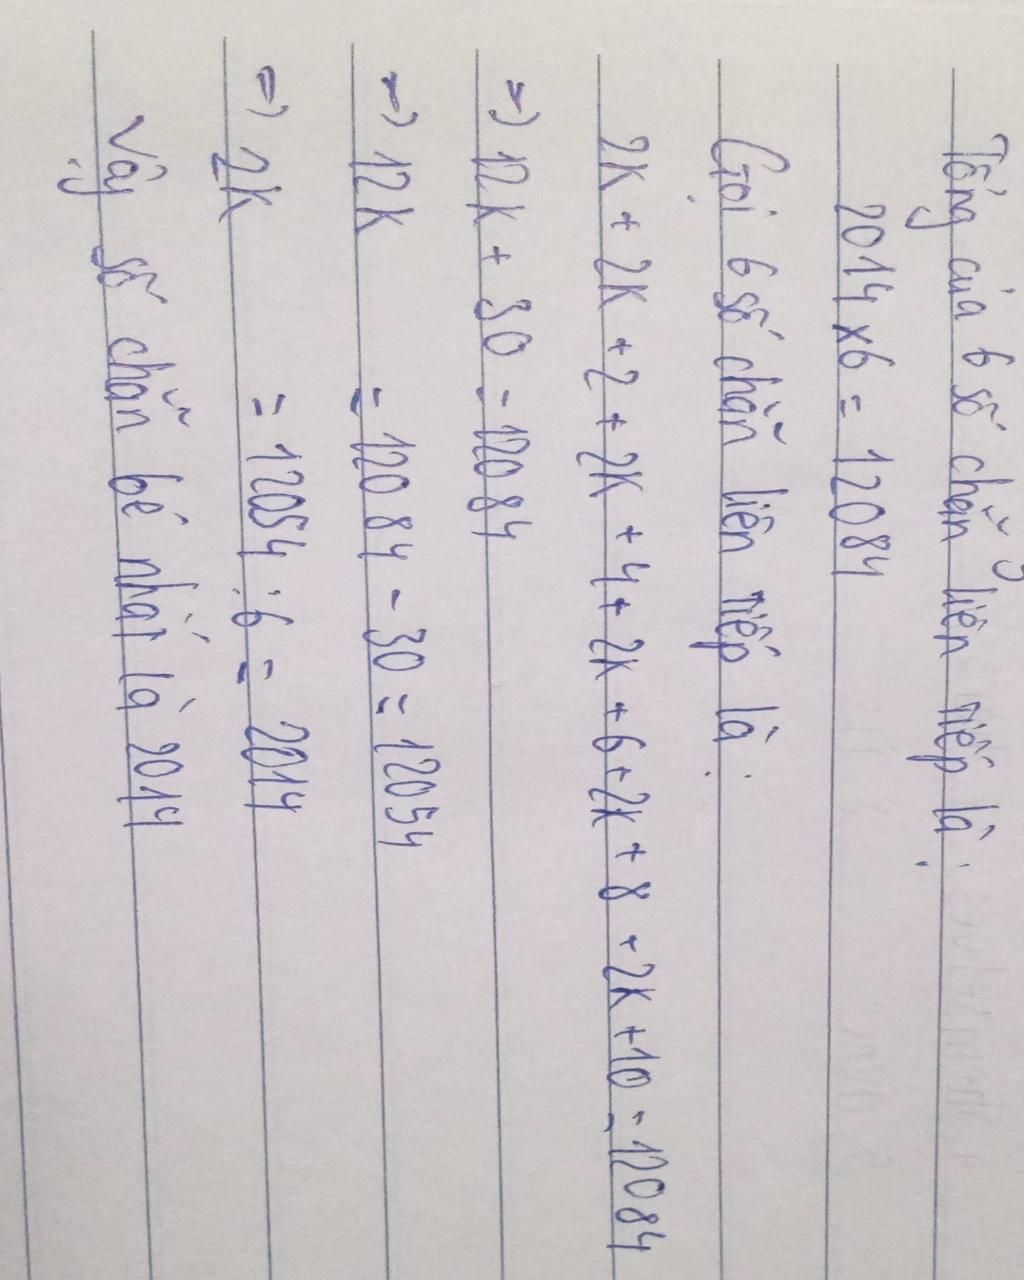 Tổng của 6 số chẵn liên tiếp là:
2014 x 6 = 12084
Gọi 6 số chẵn liên tiếp là:
2K + 2K + 2 + 2K + 4 + 2K + 6 + 2K + 8 + 2K + 10 = 12084
=) 12K + 30 = 12084
=) 12K = 12084 - 30 = 12054
=) 2K = 12054 : 6 = 2014
Vậy số chẵn bé nhất là 2014